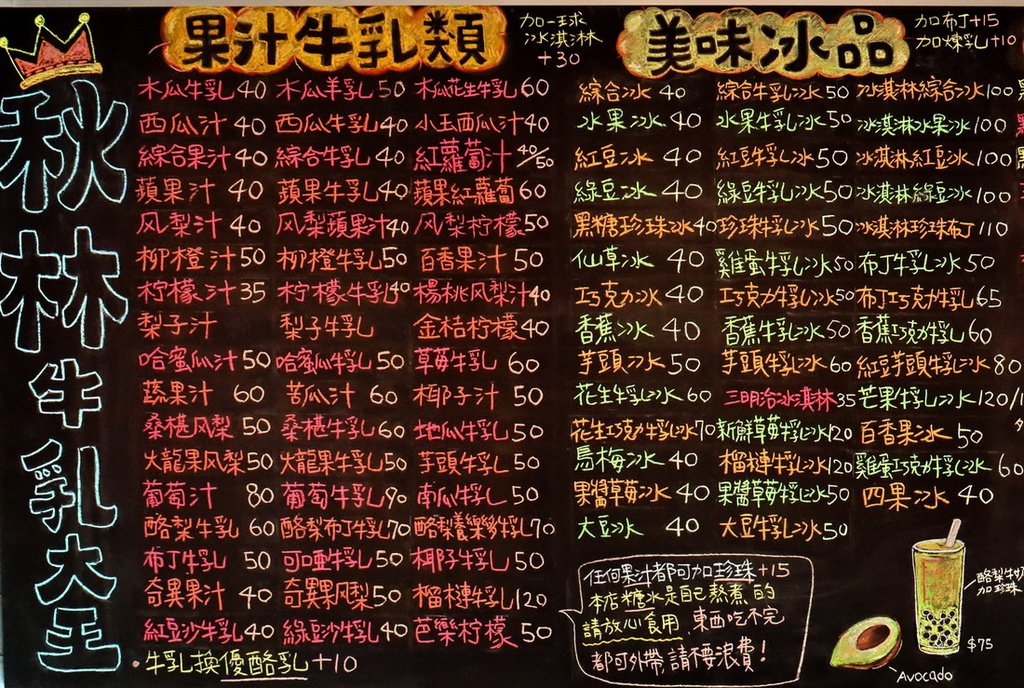 秋林牛乳大王
果汁牛乳類
加一球
冰淇淋
+30
木瓜牛乳40 木瓜羊乳50 木瓜花生牛乳60
西瓜汁40 西瓜牛乳40 小玉西瓜汁40
綜合果汁40 綜合牛乳40 紅蘿蔔汁40/50
蘋果汁40 蘋果牛乳40 蘋果紅蘿蔔60
风梨汁40 风梨蘋果汁40 风梨柠檬50
柳橙汁50 柳橙牛乳50 百香果汁50
柠檬汁35 柠檬牛乳40 楊桃风梨汁40
梨子汁 梨子牛乳 金桔柠檬40
哈蜜瓜汁50 哈蜜瓜牛乳50 草莓牛乳60
蔬果汁60 苦瓜汁60 椰子汁50
桑椹风梨50 桑椹牛乳60 地瓜牛乳50
火龍果风梨50 火龍果牛乳50 芋頭牛乳50
葡萄汁80 葡萄牛乳90 南瓜牛乳50
酪梨牛乳60 酪梨布丁牛乳70 酪梨養樂多牛乳70
布丁牛乳50 可口亞牛乳50 椰子牛乳50
奇異果汁40 奇異果风梨50 榴槤牛乳120
紅豆沙牛乳40 綠豆沙牛乳40 芭樂柠檬50
•牛乳換優酪乳+10
美味冰品
加布丁+15
加煉乳+10
綜合冰40 綜合牛乳冰50 冰淇淋綜合冰100
水果冰40 水果牛乳冰50 冰淇淋水果冰100
紅豆冰40 紅豆牛乳冰50 冰淇淋紅豆冰100
綠豆冰40 綠豆牛乳冰50 冰淇淋綠豆冰100
黑糖珍珠冰40 珍珠牛乳冰50 冰淇淋珍珠布丁110
仙草冰40 雞蛋牛乳冰50 布丁牛乳冰50
巧克力冰40 巧克力牛乳冰50 布丁巧克力牛乳65
香蕉冰40 香蕉牛乳冰50 香蕉巧克力牛乳60
芋頭冰50 芋頭牛乳冰60 紅豆芋頭牛乳冰80
花生牛乳冰60 三明治冰淇淋35 芒果牛乳冰120/
花生巧克力牛乳冰70 新鮮草莓牛乳冰120 百香果冰50
烏梅冰40 榴槤牛乳冰120 雞蛋巧克力牛乳冰60
果醬草莓冰40 果醬草莓牛乳冰50 四果冰40
大豆冰40 大豆牛乳冰50
任何果汁都可加珍珠+15
本店糖水是自己熬煮的
請放心食用,東西吃不完
都可外帶,請不要浪費!
酪梨牛乃
加珍珠
$75
Avocado